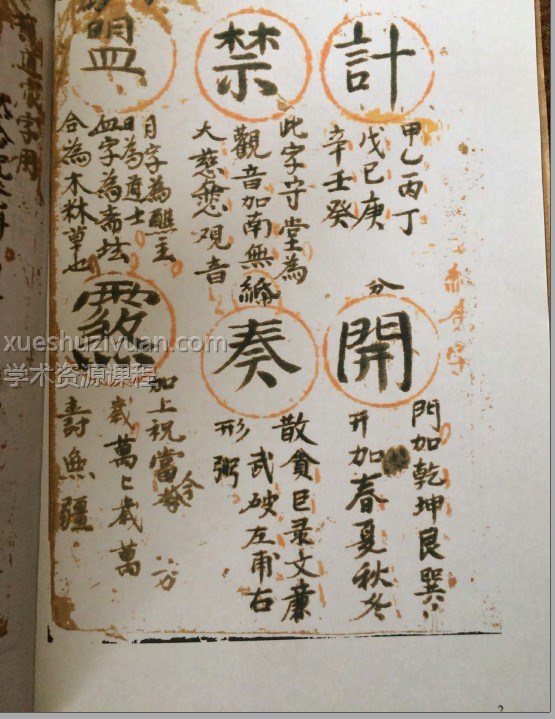 計
甲乙丙丁
戊己庚
辛壬癸
禁
此字守堂為
觀音加南無
大慈悲观音
盟
目字為醮主
日為道士
血字為斋坛
合為木林草也
分
開
門加乾坤艮巽
开加春夏秋冬
奏
散貪巨录文廉
武破左甫右
形弼
加上祝當今
万
歲萬〻歲萬
壽無疆
字用
xueshuziyuan.com
学术资源课程
2